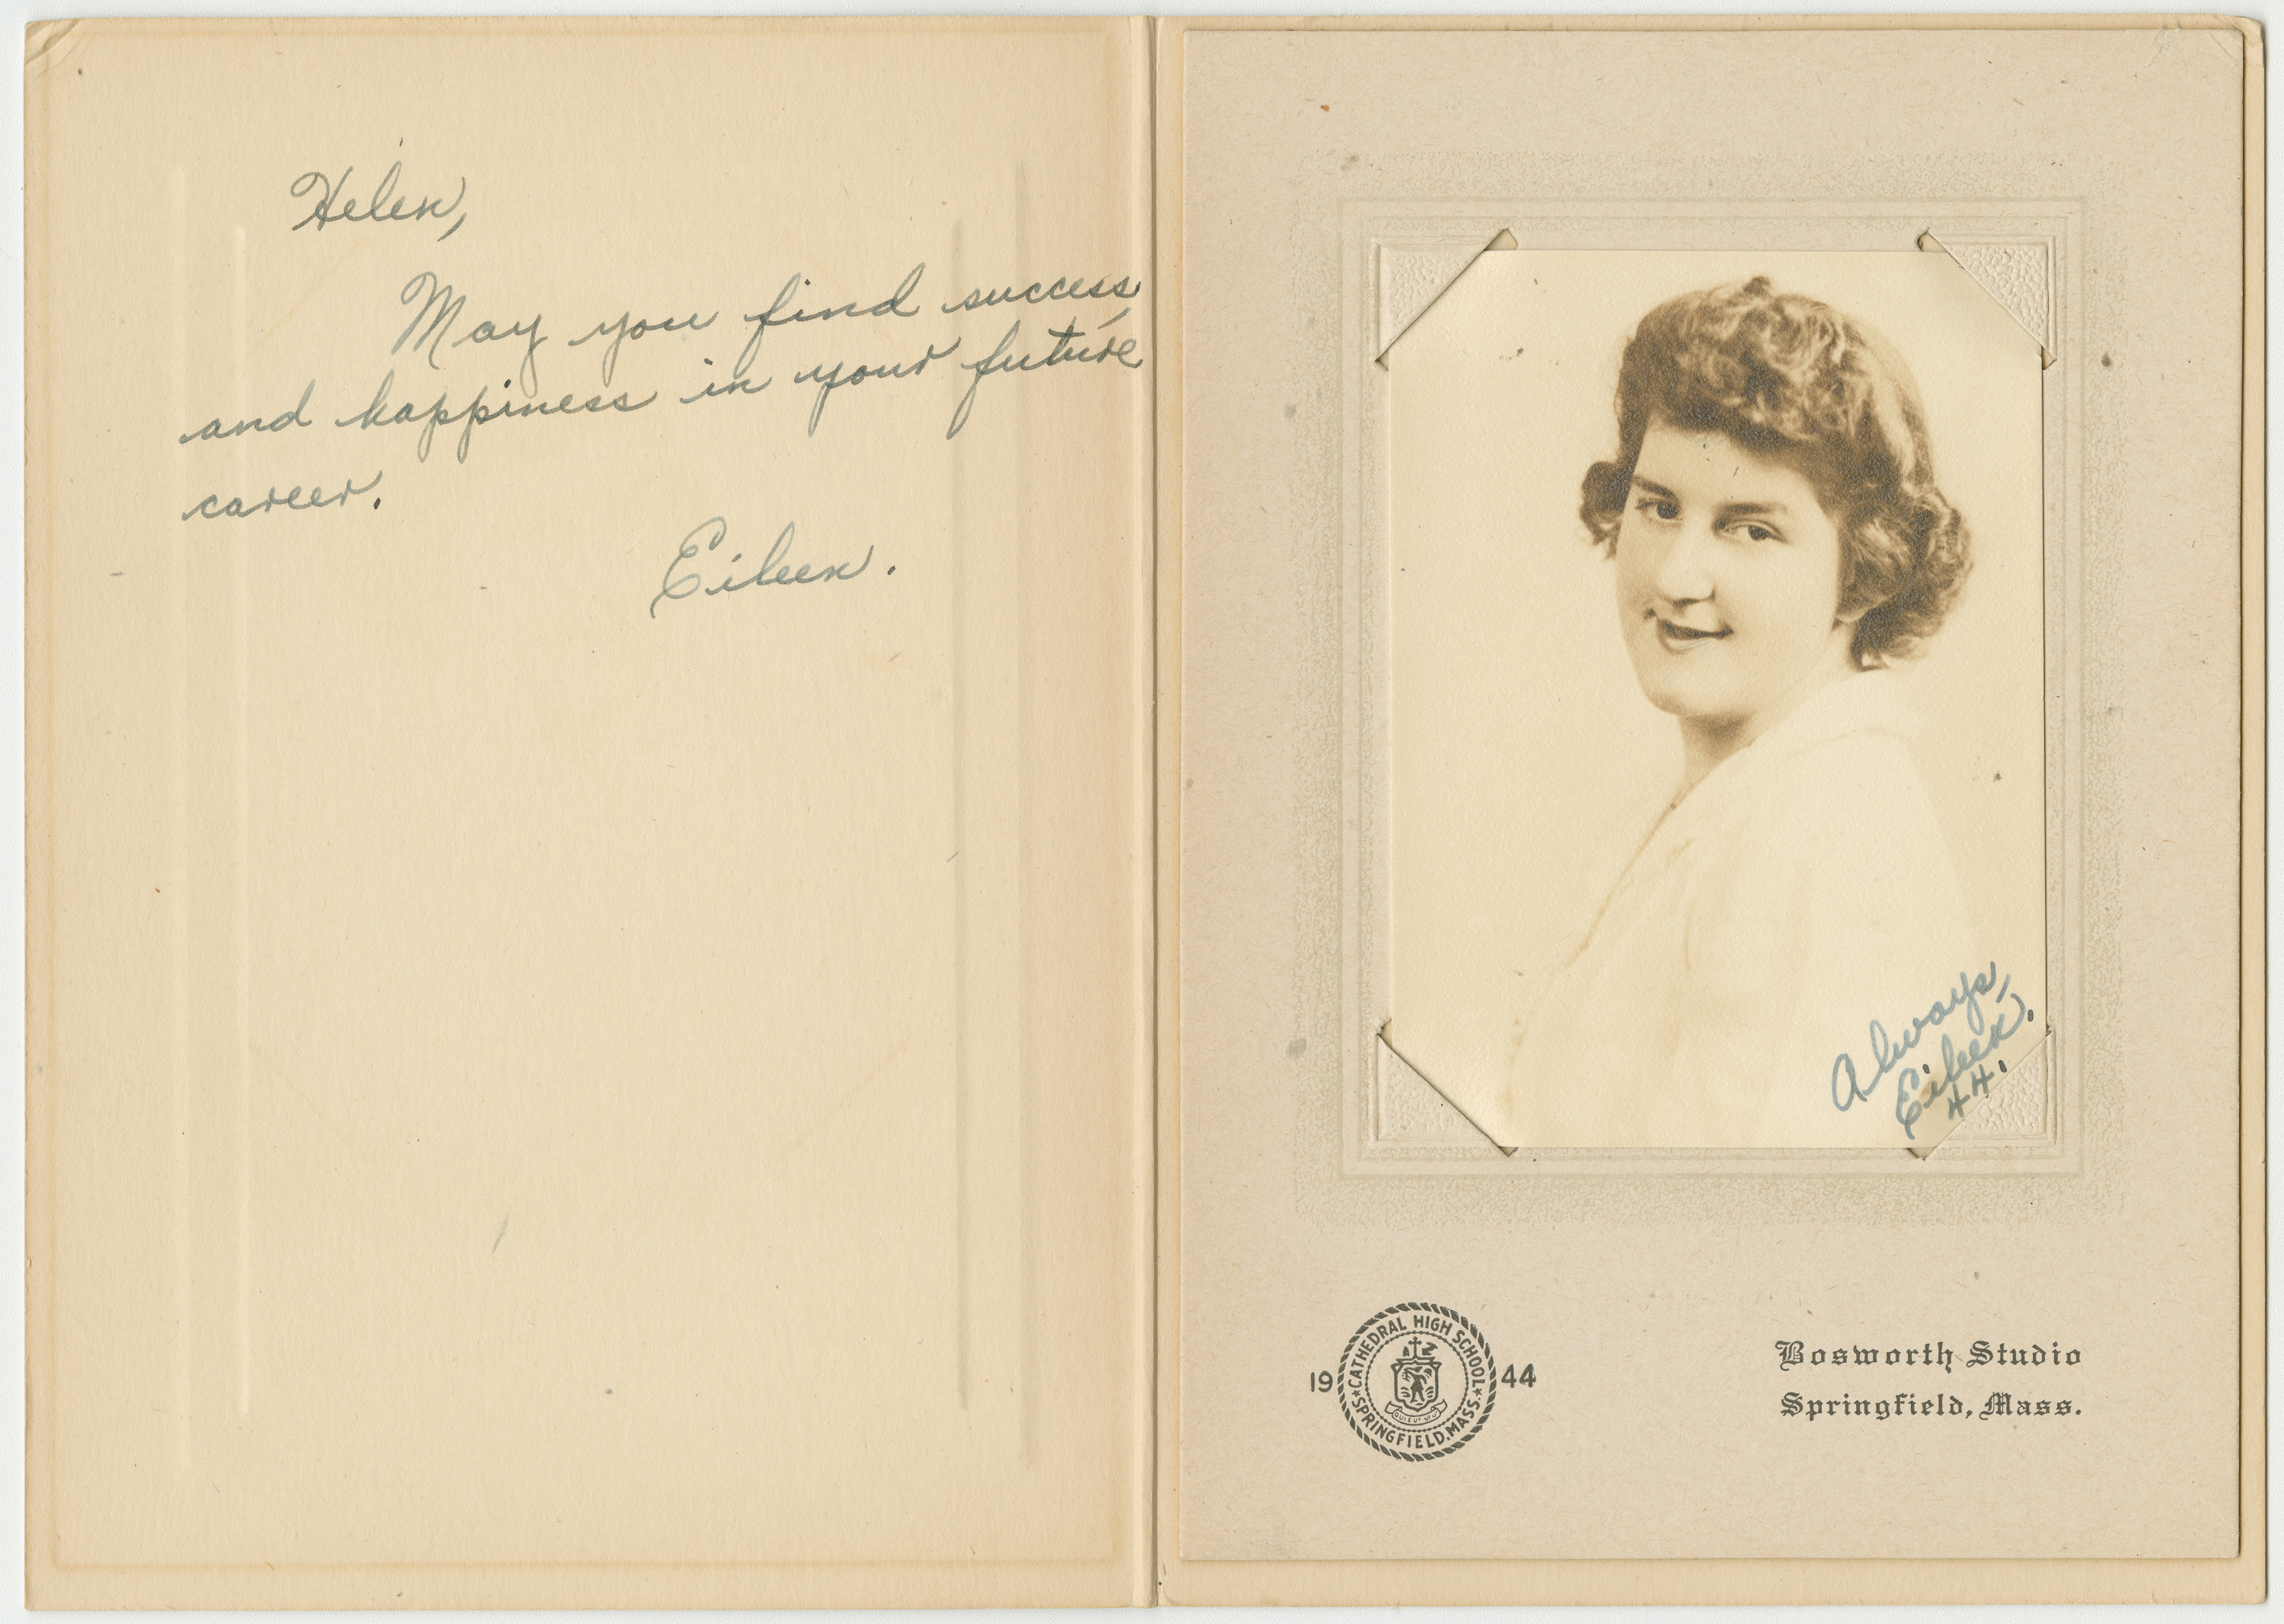 Helen,
May you find success,
and happiness in your future
career.
Eileen.
Always,
Eileen.
44.
19 44
CATHEDRAL HIGH SCHOOL
SPRINGFIELD, MASS.
Bosworth Studio
Springfield, Mass.